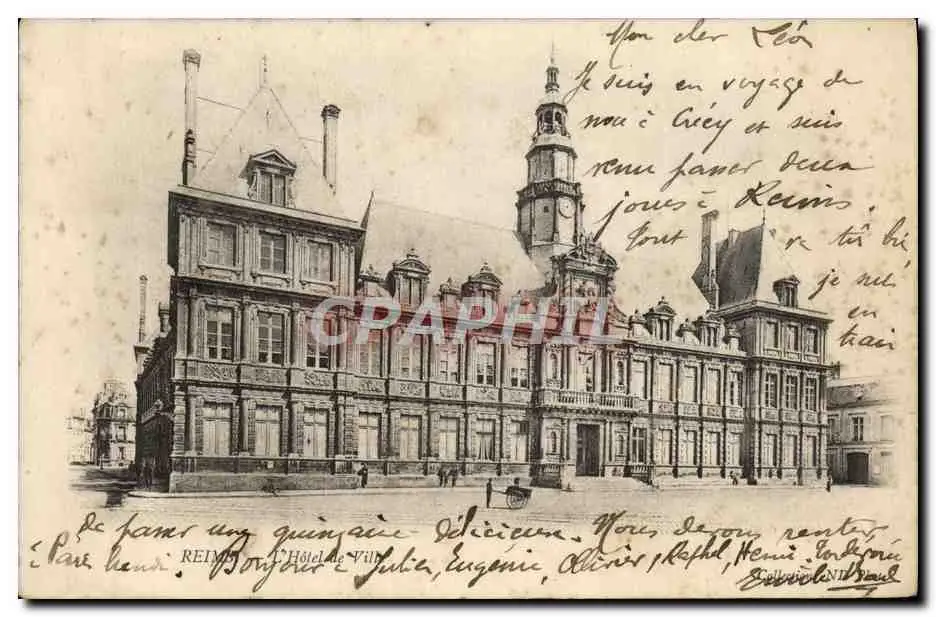 Mon cher Léon
Je suis en voyage de
noce à Crécy et suis
venu passer deux
jours à Reims.
Tout va très bien
je suis
en
train
de passer une quinzaine délicieuse. Nous devons rentrer
à Paris lundi. Bonjour à Julien, Eugénie, Olivier, Raphel, Henri
Emile
REIMS - L'Hôtel de Ville
Collections ND Phot
CPARAMA